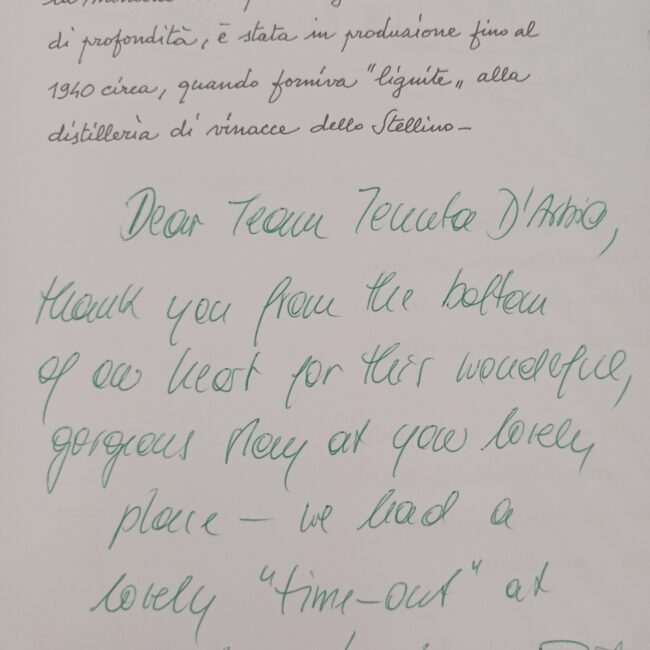 di profondità, è stata in produzione fino al
1940 circa, quando forniva "lignite" alla
distilleria di vinacce dello Stellino -
Dear Team Tenuta D'Arbia,
thank you from the bottom
of our heart for this wonderful,
gorgeous stay at your lovely
place - we had a
lovely "time-out" at